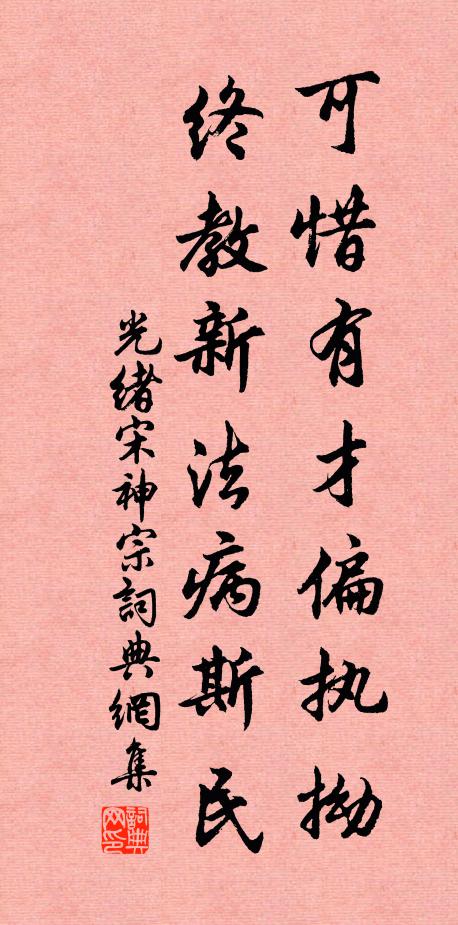 可惜有才偏执拗
终教新法病斯民
光绪宋神宗詞典網集
詞典网印